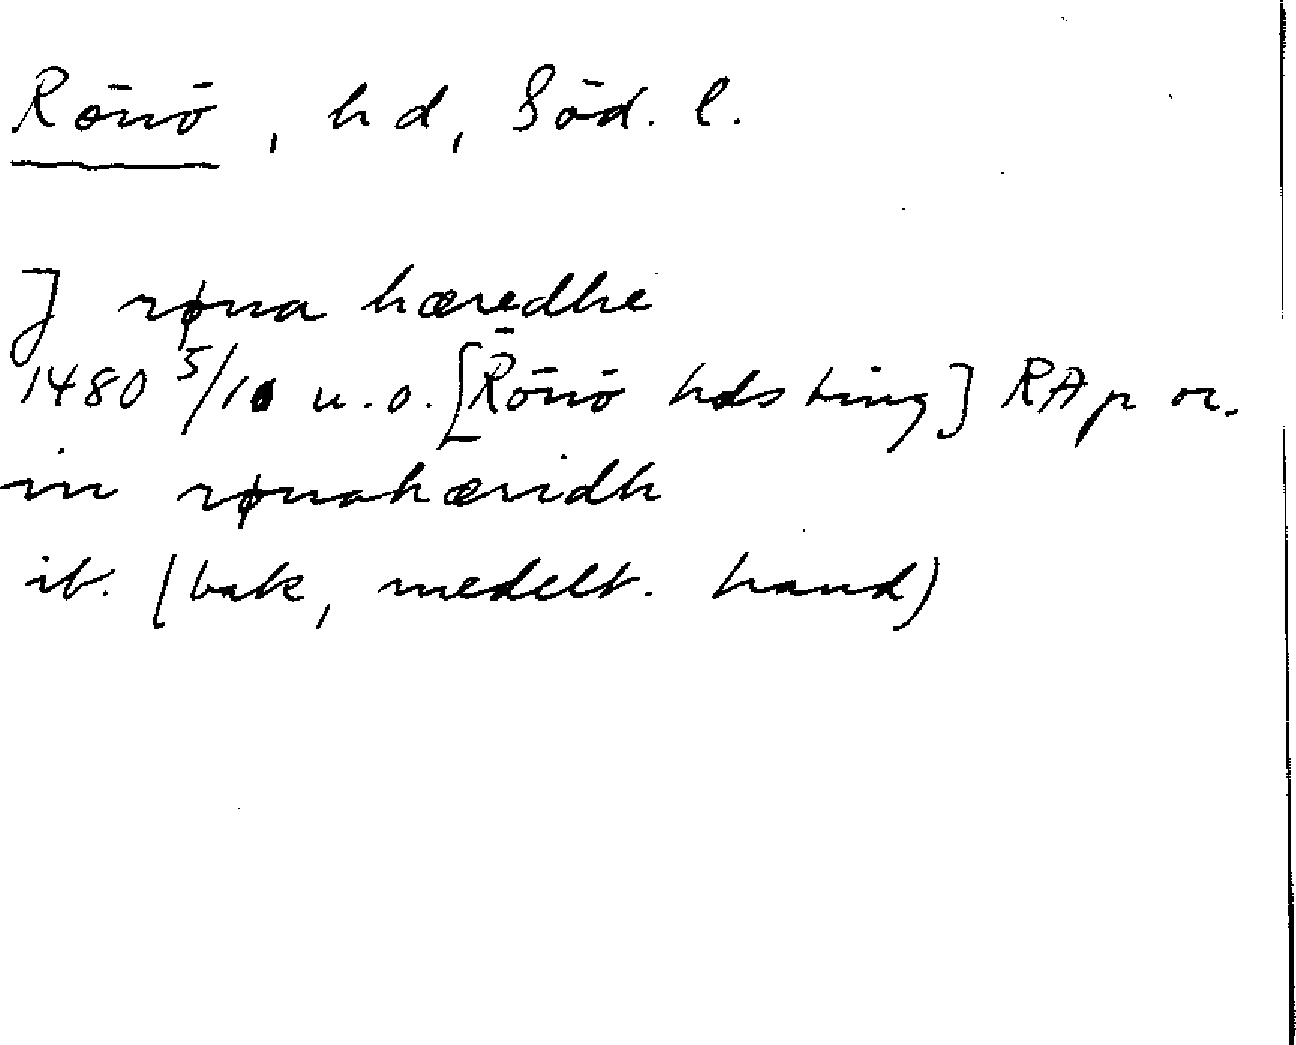 Rönö, hd, Söd. l.
J røna hæredhe
1480 5/10 u.o. [Rönö hds ting] RAp or.
in rønahæridh
ib. (bak, medelt. hand)